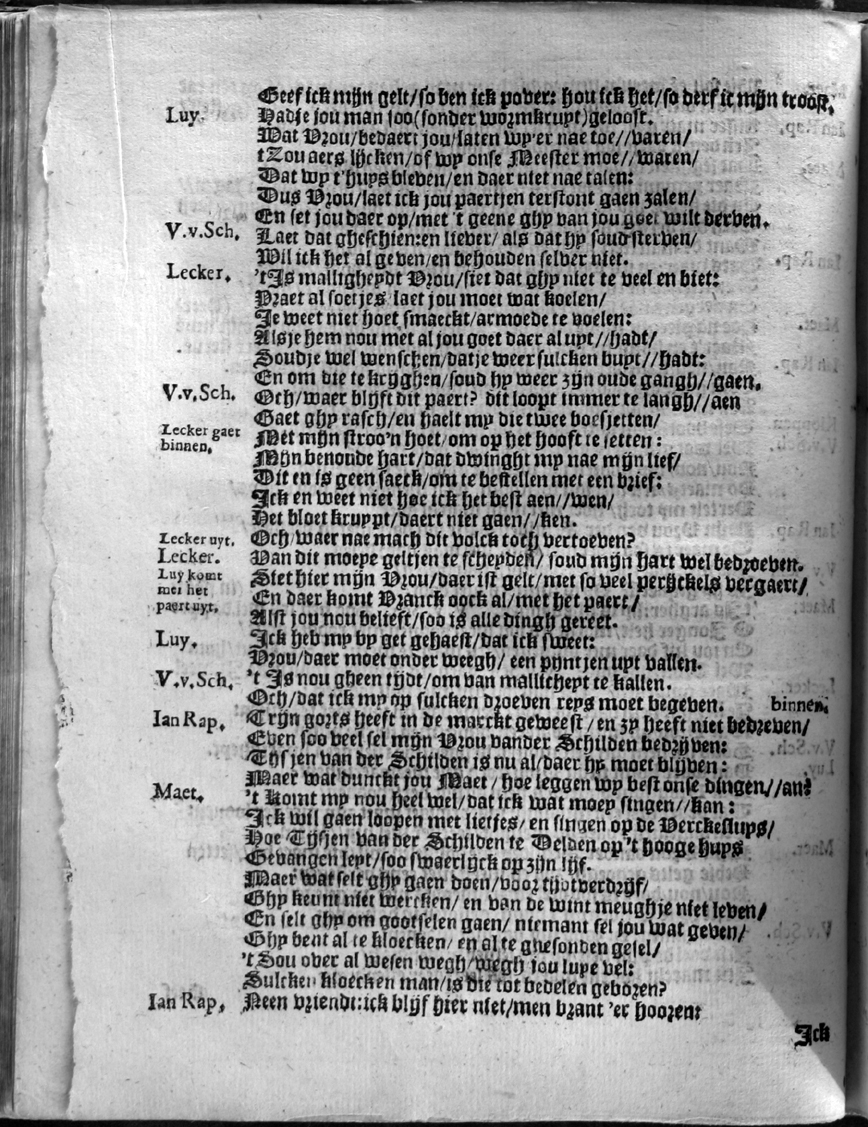 Geef ick mijn gelt/so ben ick pover: hou ick het/so derf ic mijn troost.
Luy. Hadje jou man soo(sonder wormkruyt)geloost.
Wat Vrou/bedaert jou/laten wy'er nae toe//varen/
tZou aers lijcken/of wy onse Meester moe//waren/
Dat wy t'huys bleven/en daer niet nae talen:
Dus Vrou/laet ick jou paertjen terstont gaen zalen/
En set jou daer op/met 't geene ghy van jou goet wilt derven.
V.v.Sch. Laet dat gheschien:en liever/ als dat hy soud sterven/
Wil ick het al geven/en behouden selver niet.
Lecker. 't Is malligheydt Vrou/siet dat ghy niet te veel en biet:
Praet al soetjes/laet jou moet wat koelen/
Je weet niet hoet smaeckt/armoede te voelen:
Alsje hem nou met al jou goet daer al uyt//hadt/
Soudje wel wenschen/datje weer sulcken buyt//hadt:
En om die te krijghen/soud hy weer zijn oude gangh//gaen.
V.v.Sch. Och/waer blijft dit paert? dit loopt immer te langh//aen
Gaet ghy rasch/en haelt my die twee boesjetten/
Lecker gaet binnen. Met mijn stroo'n hoet/om op het hooft te setten:
Mijn benoude hart/dat dwinght my nae mijn lief/
Dit en is geen saeck/om te bestellen met een brief:
Ick en weet niet hoe ick het best aen//wen/
Het bloet kruypt/daert niet gaen//ken.
Lecker uyt. Och/waer nae mach dit volck toch vertoeven?
Lecker. Van dit moeye geltjen te scheyden/ soud mijn hart wel bedroeven.
Luy komt met het paert uyt. Siet hier mijn Vrou/daer ist gelt/met so veel perijckels vergaert/
En daer komt Vranck oock al/met het paert/
Alst jou nou belieft/soo is alle dingh gereet.
Luy. Ick heb my by get gehaest/dat ick sweet:
Vrou/daer moet onder weegh/ een pyntjen uyt vallen.
V.v.Sch. 't Is nou gheen tijdt/om van mallicheyt te kallen.
Och/dat ick my op sulcken droeven reys moet begeven. binnen.
Ian Rap. Trijn gorts heeft in de marckt geweest/en zy heeft niet bedreven/
Even soo veel sel mijn Vrou vander Schilden bedrijven:
Tijsjen van der Schilden is nu al/daer hy moet blijven:
Maer wat dunckt jou Maet/hoe leggen wy best onse dingen//an?
Maet. 't Komt my nou heel wel/dat ick wat moey singen//kan:
Ick wil gaen loopen met lietjes/en singen op de Verckesluys/
Hoe Tijsjen van der Schilden te Delden op 't hooge huys
Gevangen leyt/soo swaerlijck op zijn lijf.
Maer wat selt ghy gaen doen/voor tijdtverdrijf/
Ghy keunt niet wercken/en van de wint meughje niet leven/
En selt ghy om gootselen gaen/niemant sel jou wat geven/
Ghy bent al te kloecken/en al te ghesonden gesel/
't Sou over al wesen wegh/wegh jou luye vel:
Sulcken kloecken man/is die tot bedelen geboren?
Ian Rap. Neen vriendt:ick blijf hier niet/men brant 'er hooren:
Ick